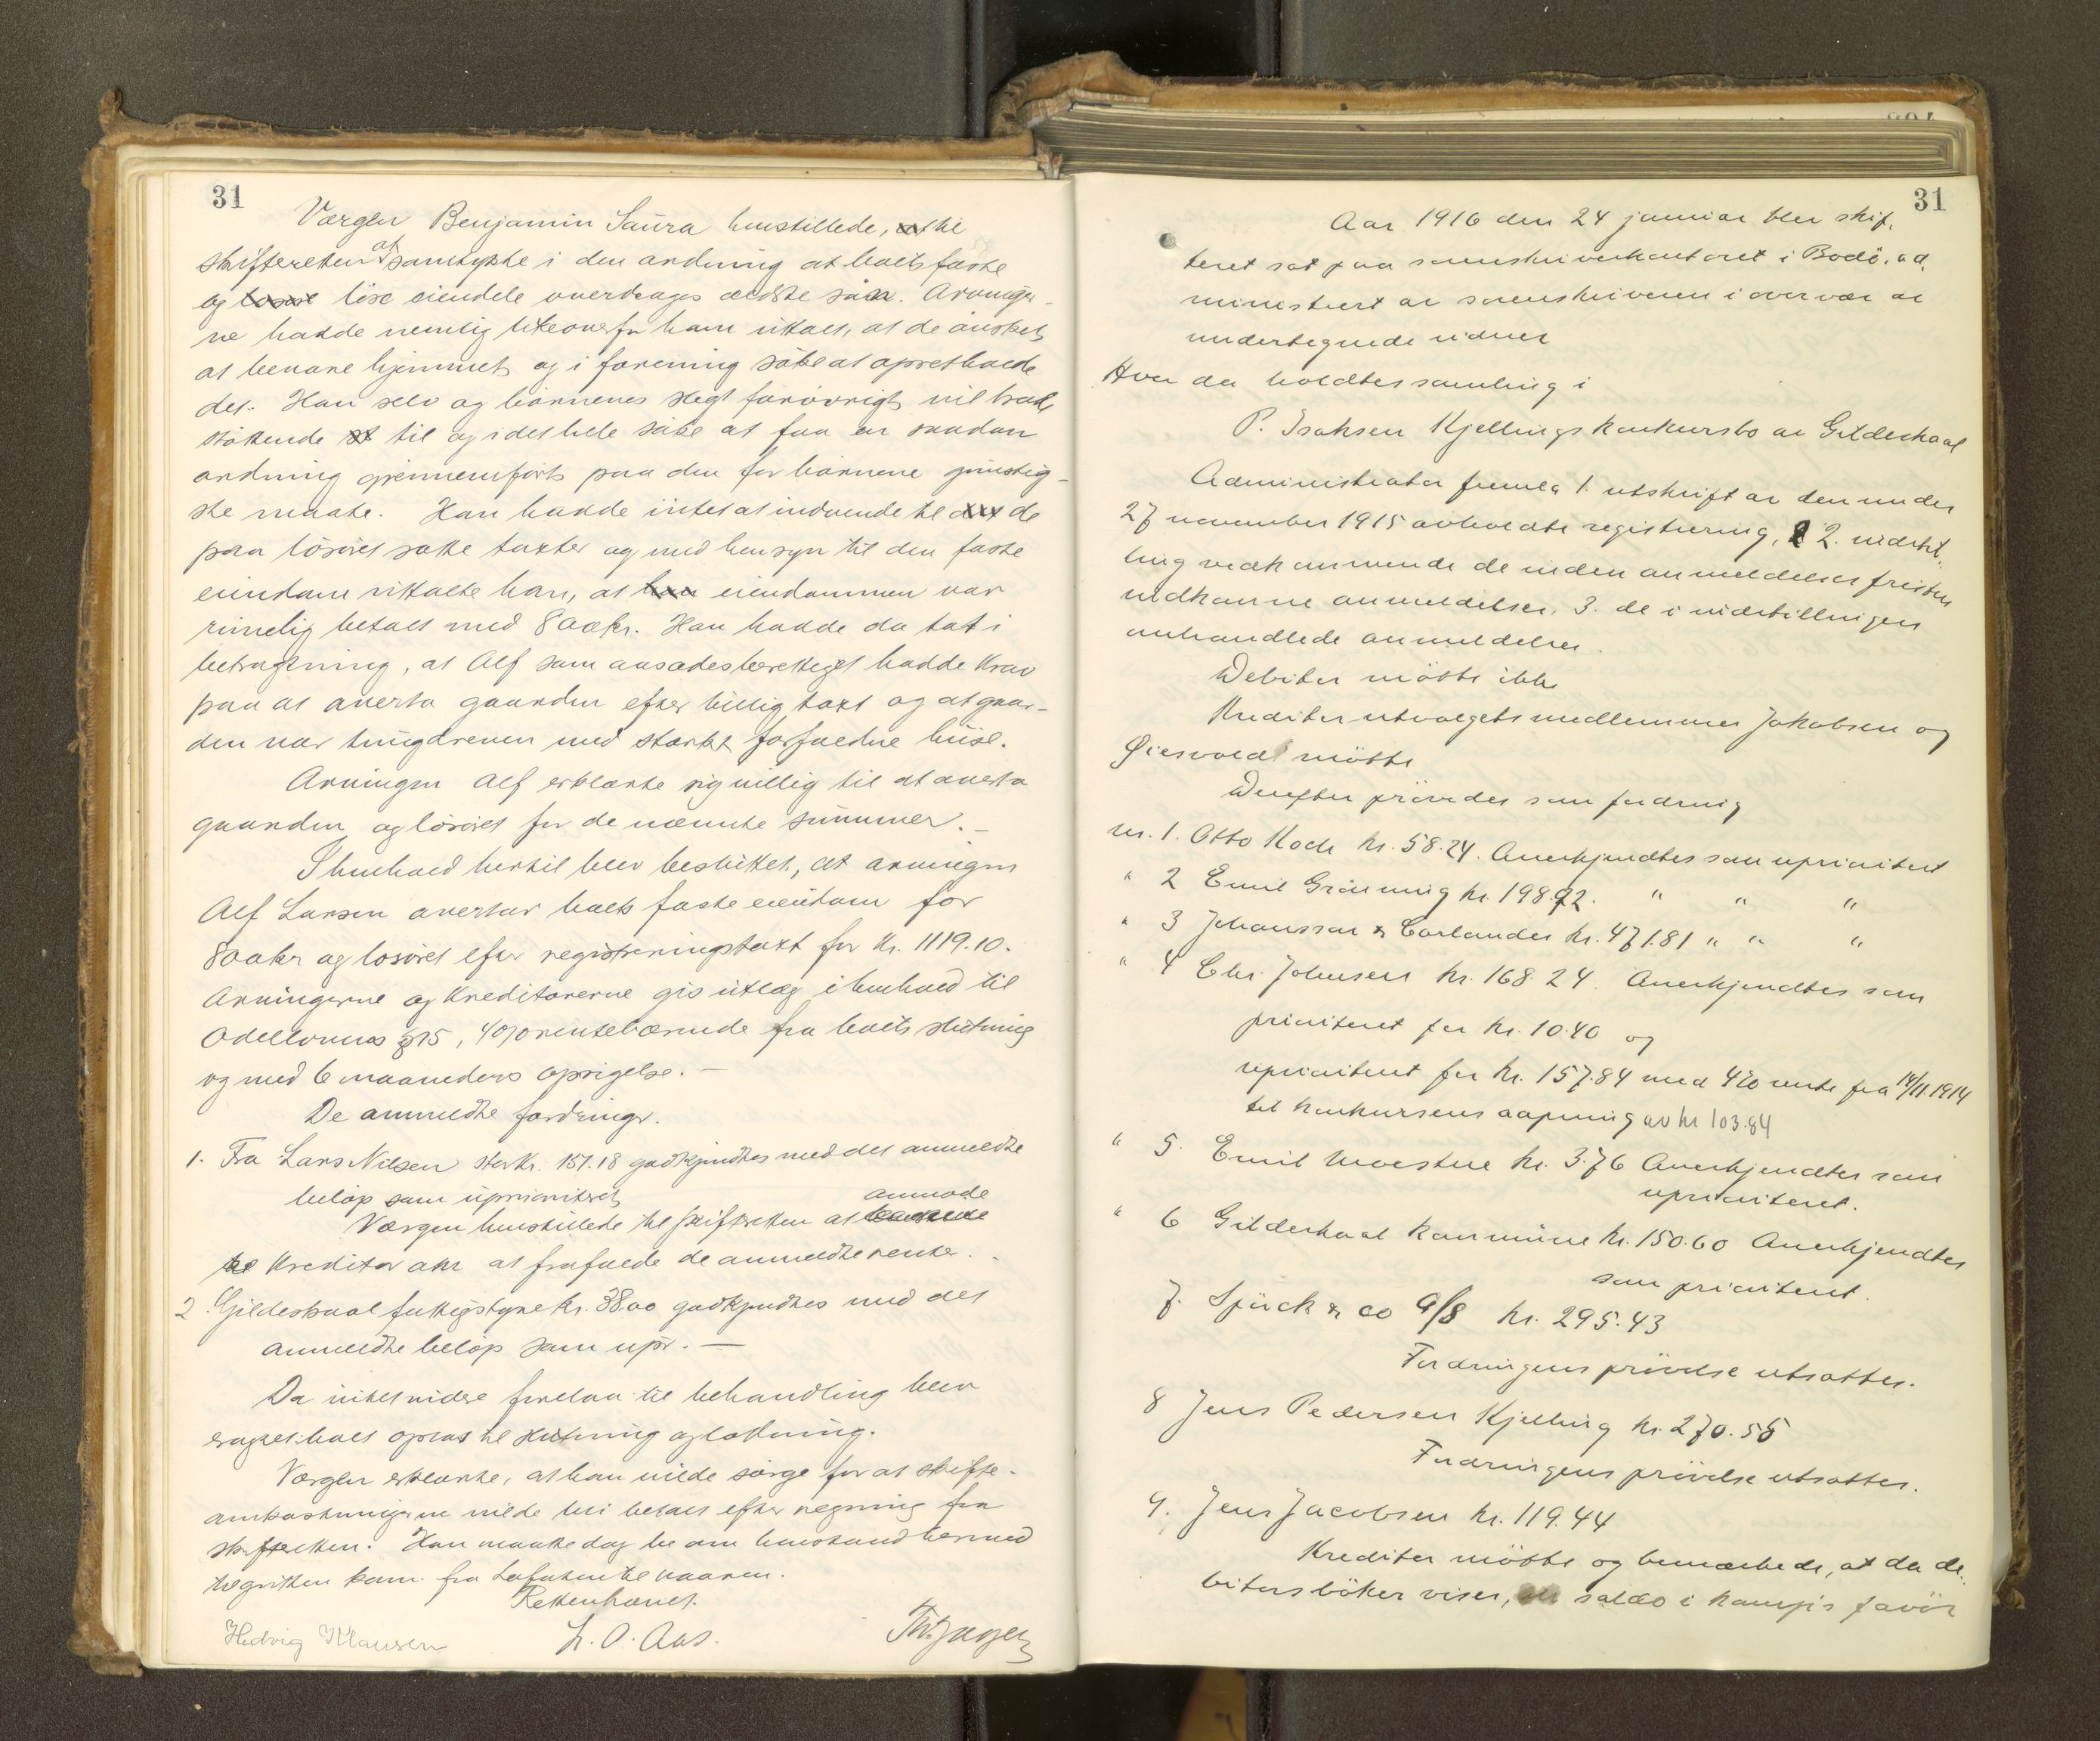 31
Værgen Benjamin Saura henstillede, til
skifteretten at samtykke i den ordning at boets faste
og løse eiendele overdrages ældste søn. Arvinger-
ne hadde nemlig likeoverfor ham uttalt, at de ønsket
at bevare hjemmet og i forening søke at opretholde
det. Han selv og børnenes slegt forøvrigt vil træde
støttende til og i det hele søke at faa en saadan
ordning gjennemført paa den for børnene gunstig-
ste maate. Han hadde intet at indvende til de
paa løsøret satte takster og med hensyn til den faste
eiendom uttalte han, at eiendommen var
rimelig betalt med 800kr. Han hadde da tat i
betragtning, at Alf som aasædesberettiget hadde krav
paa at overta gaarden efter billig takst og at gaar-
den var tungdreven med sterkt forfaldne huse.
Arvingen Alf erklærte sig villig til at overta
gaarden og løsøret for de nævnte summer.-
I henhold hertil blev besluttet, at arvingen
Alf Larsen overtar boets faste eiendom for
800kr og løsøret efter registreringstakst for kr. 1119.10.
Arvingerne og kreditorerne gis utlæg i henhold til
Odellovens § 15, 4% rentebærende fra boets slutning
og med 6 maaneders opsigelse.-
De anmeldte fordringer.
1. Fra Lars Nilsen stor kr. 151.18 godkjendtes med det anmeldte
beløp som uprioritert
anmode
Værgen henstillede til skifteretten at
kreditor om at frafalde de anmeldte renter.-
2. Gildeskaal fattigstyre kr. 38.00 godkjendtes med det
anmeldte beløp som upr.-
Da intet videre forelaa til behandling blev
boet optat til slutning og lodning.
Værgen erklærte, at han vilde sørge for at skifte-
omkostningerne vilde bli betalt efter regning fra
skifteretten. Han maatte dog be om henstand hermed
til gutten kom fra Lofoten til vaaren.
Retten hævet.
Hedvig Klausen L. O. Aas.
31
Aar 1916 den 24 januar blev skif-
teret sat paa sorenskriverkontoret i Bodø, ad-
ministrert av sorenskriveren i overvær av
undertegnede vidner
Hvor da holdtes samling i
P. Isaksen Kjellings konkursbo av Gildeskaal
Administrator fremla 1. utskrift av den under
27 november 1915 avholdte registrering, 2. indstil-
ling vedkommende de inden anmeldelsesfristen
indkomne anmeldelser. 3. de i indstillingen
omhandlede anmeldelser.
Debitor møtte ikke
Kreditorutvalgets medlemmer Jakobsen og
Øiesvold møtte
Derefter prøvedes som fordring
nr. 1. Otto Koch kr. 58.24. Anerkjendtes som uprioritert
" 2 Emil Grönning kr. 198.92. " " "
" 3 Johansson & Carlander kr. 471.81 " " "
" 4 Chr. Johnsen kr. 168.24. Anerkjendtes som
prioritert for kr. 10.40 og
uprioritert for kr. 157.84 med 4% rente fra 14/11.1914
til konkursens aapning av kr 103.84
" 5. Emil Moestue kr. 3.76 Anerkjendtes som
uprioritert.
" 6 Gildeskaal kommune kr. 150.60 Anerkjendtes
som prioritert.
7. Spürck & co A/S kr. 295.43
Fordringens prövelse utsattes.
8 Jens Pedersen Kjelling kr. 270.55
Fordringens prövelse utsattes.
9. Jens Jacobsen kr. 119.44
Kreditor møtte og bemærkede, at da de-
bitors böker viser, saldo i favör